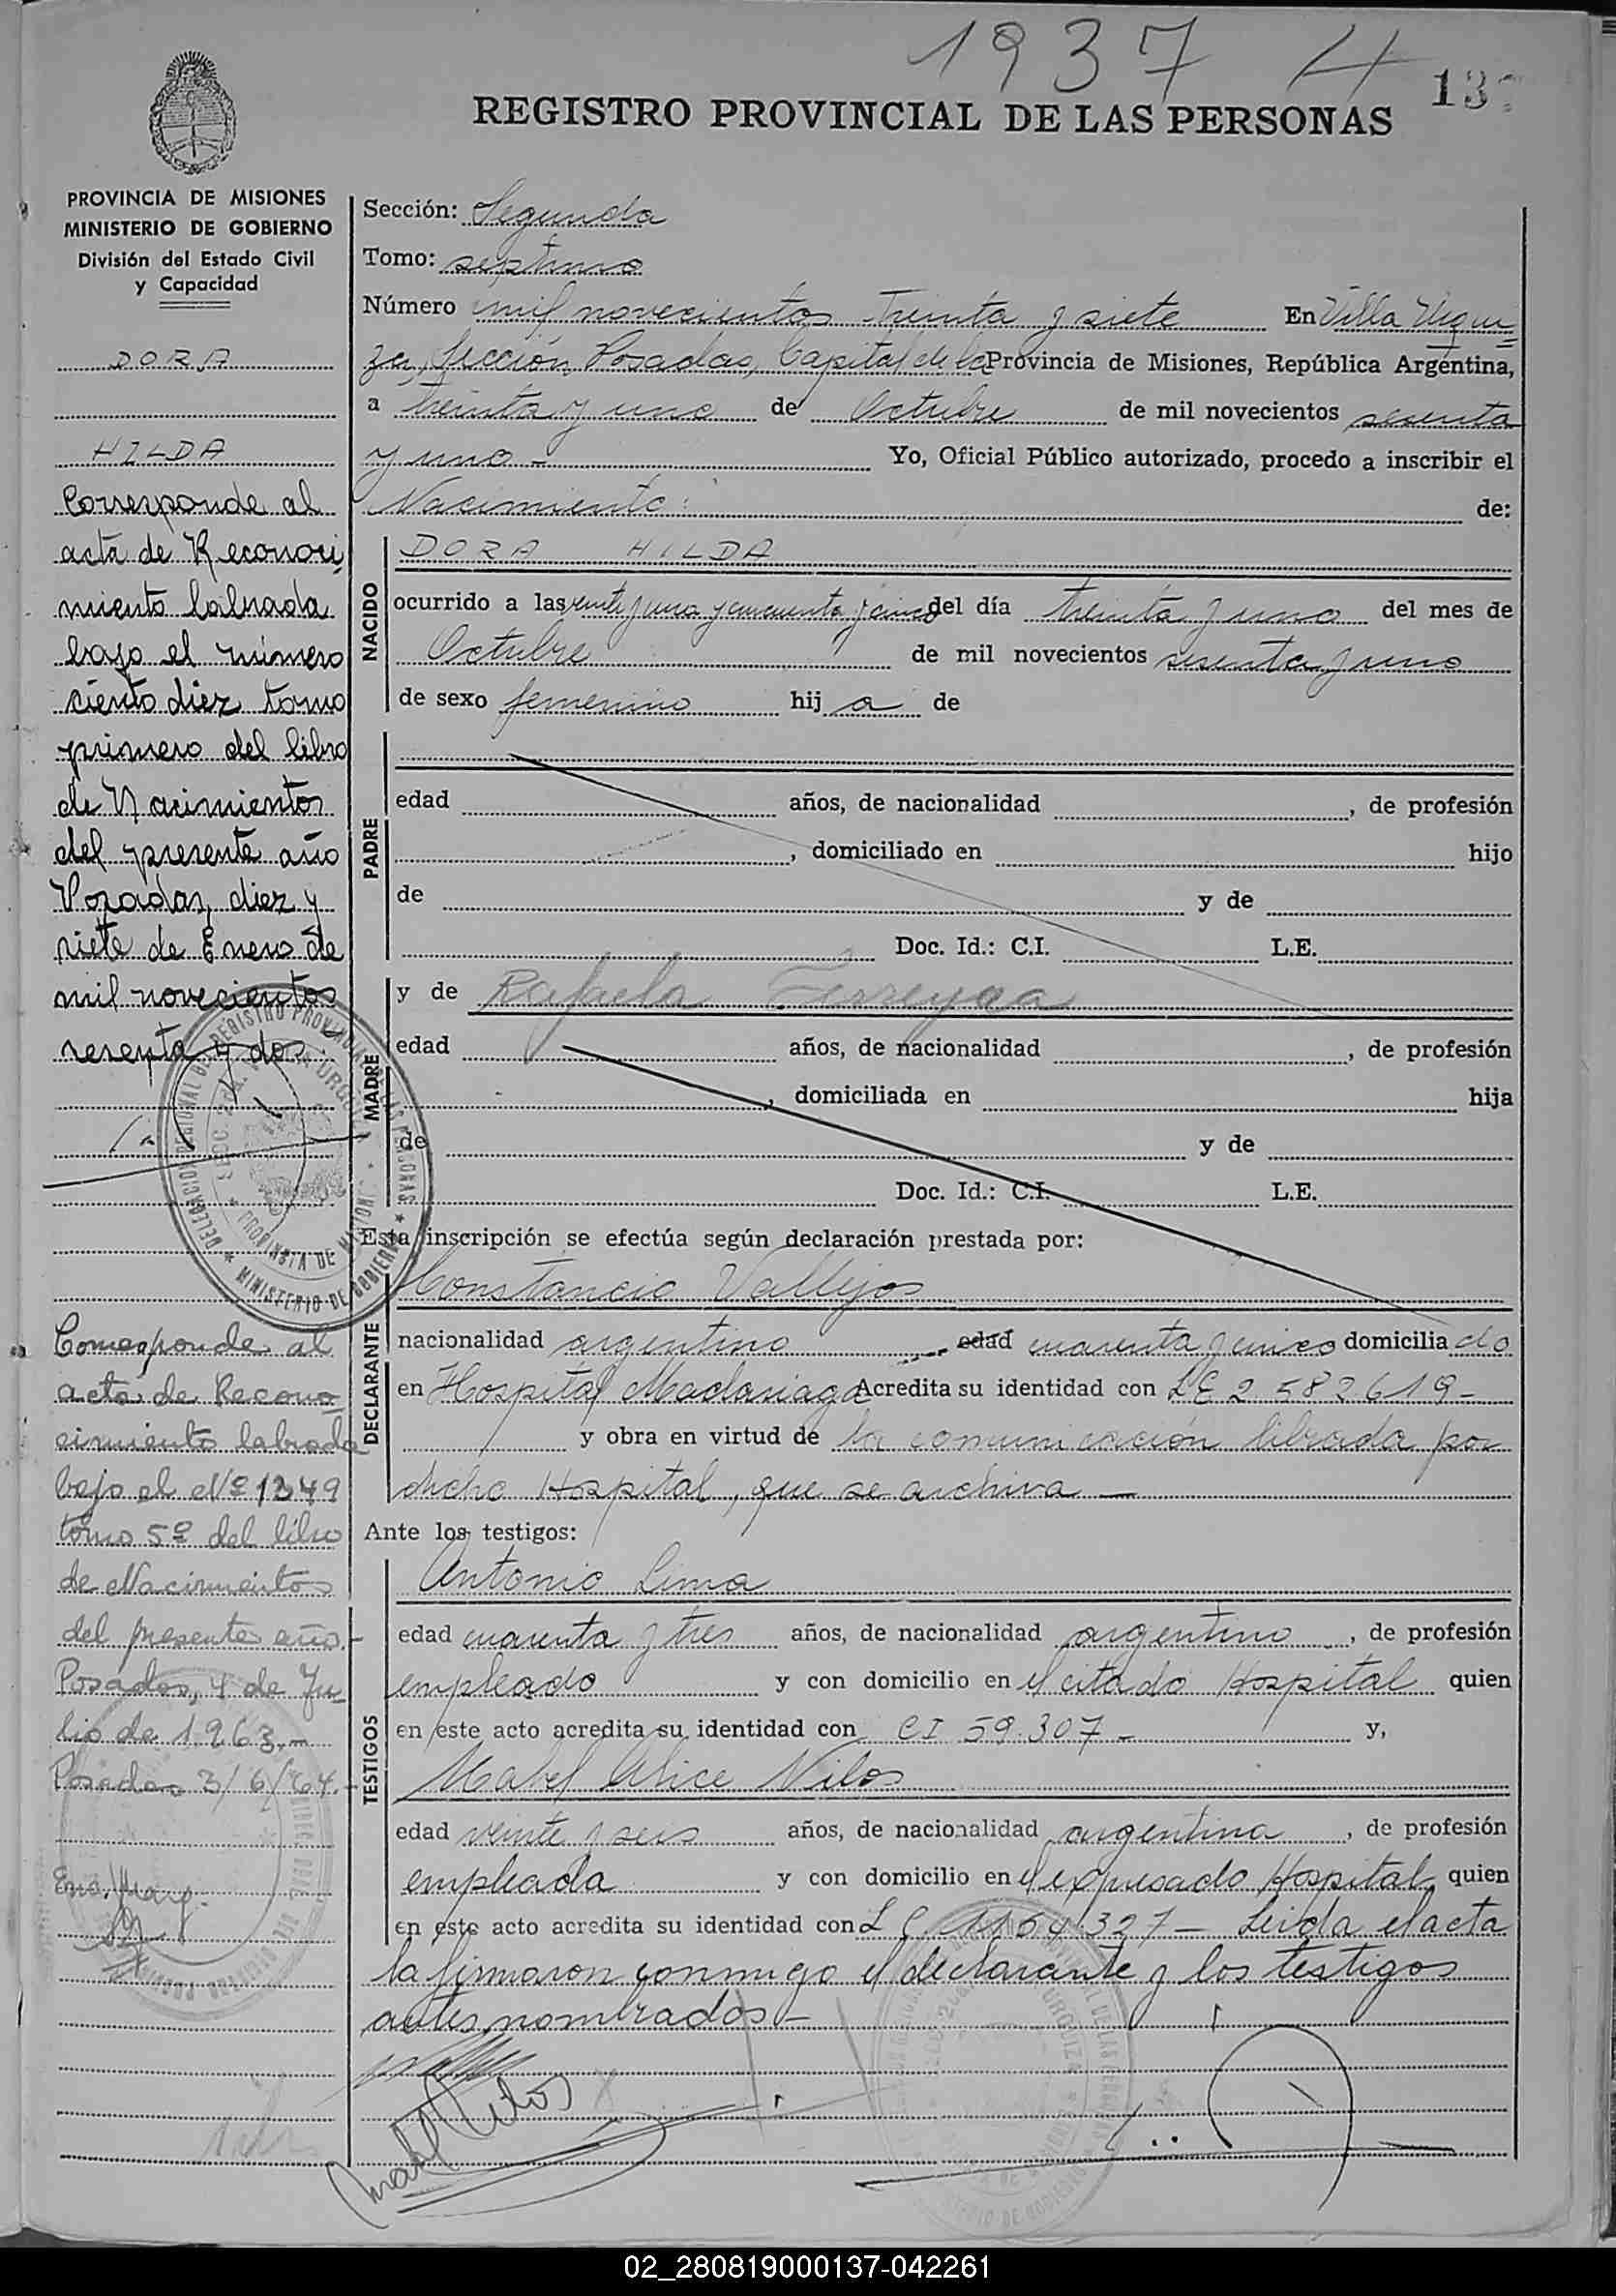 1937 4
13
REGISTRO PROVINCIAL DE LAS PERSONAS
PROVINCIA DE MISIONES
MINISTERIO DE GOBIERNO
División del Estado Civil
y Capacidad
DORA
HILDA
Corresponde al
acta de Reconoci
miento labrada
bajo el número
ciento diez tomo
primero del libro
de Nacimientos
del presente año
Posadas, diez y
siete de Enero de
mil novecientos
sesenta y dos
Corresponde al
acta de Recono
cimiento labrada
bajo el Nº 1349
tomo 5º del libro
de Nacimientos
del presente año.-
Posadas, 4 de Ju
lio de 1963.-
Posadas 3/6/64.-
Sección: Segunda
Tomo: septimo
Número mil novecientos treinta y siete En Villa Urqui
za, Sección Posadas, Capital de la Provincia de Misiones, República Argentina,
a treinta y uno de Octubre de mil novecientos sesenta
y uno - Yo, Oficial Público autorizado, procedo a inscribir el
Nacimiento: de:
NACIDO
DORA HILDA
ocurrido a las veinte y una y cincuenta y cinco del día treinta y uno del mes de
Octubre de mil novecientos sesenta y uno
de sexo femenino hij a de
PADRE
edad años, de nacionalidad , de profesión
, domiciliado en hijo
de y de
Doc. Id.: C.I. L.E.
MADRE
y de Rafaela Ferreyra
edad años, de nacionalidad , de profesión
, domiciliada en hija
de y de
Doc. Id.: C.I. L.E.
Esta inscripción se efectúa según declaración prestada por:
DECLARANTE
Constancio Vallejos
nacionalidad argentino edad cuarenta y cinco domicilia do
en Hospital Madariaga Acredita su identidad con LE 2 582619-
y obra en virtud de la comunicación librada por
dicho Hospital, que se archiva -
Ante los testigos:
TESTIGOS
Antonio Lima
edad cuarenta y tres años, de nacionalidad argentino , de profesión
empleado y con domicilio en el citado Hospital quien
en este acto acredita su identidad con CI 59.307- y,
Mabel Alice Vilos
edad veinte y seis años, de nacionalidad argentina , de profesión
empleada y con domicilio en el expresado Hospital quien
en este acto acredita su identidad con L C 1164.327 - Leida el acta
la firmaron conmigo el declarante y los testigos
antes nombrados -
Mabel Vilos
02_280819000137-042261